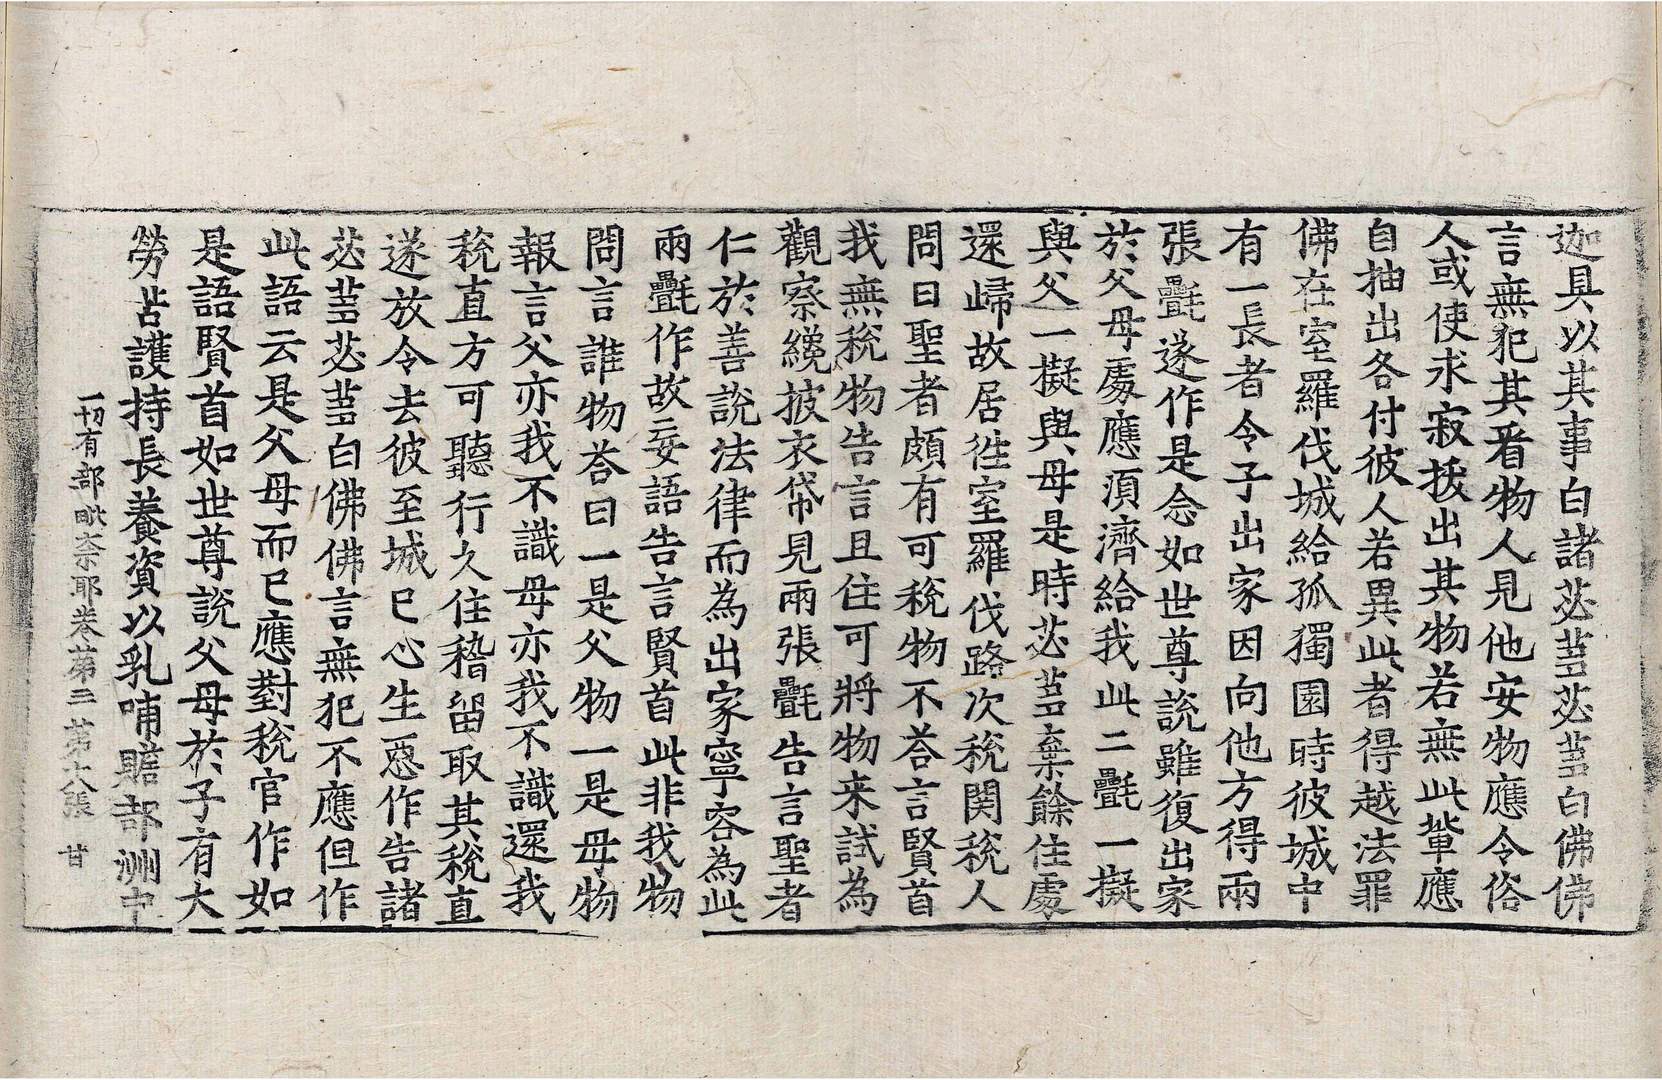 迦具以其事白諸苾芻苾芻白佛佛
言無犯其看物人見他安物應令俗
人或使求寂拔出其物若無此輩應
自抽出各付彼人若異此者得越法罪
佛在室羅伐城給孤獨園時彼城中
有一長者令子出家因向他方得兩
張㲲遂作是念如世尊說雖復出家
於父母處應須濟給我此二㲲一擬
與父一擬與母是時苾芻棄餘住處
還歸故居往室羅伐路次稅関稅人
問曰聖者頗有可稅物不荅言賢首
我無稅物告言且住可將物来試為
觀察纔披衣帒見兩張㲲告言聖者
仁於善說法律而為出家寧容為此
兩㲲作故妄語告言賢首此非我物
問言誰物荅曰一是父物一是母物
報言父亦我不識母亦我不識還我
稅直方可聽行久住稽留取其稅直
遂放令去彼至城已心生惡作告諸
苾芻苾芻白佛佛言無犯不應但作
此語云是父母而已應對稅官作如
是語賢首如世尊說父母於子有大
勞苦護持長養資以乳哺贍部洲中
一切有部毗奈耶卷苐三 苐六張 甘